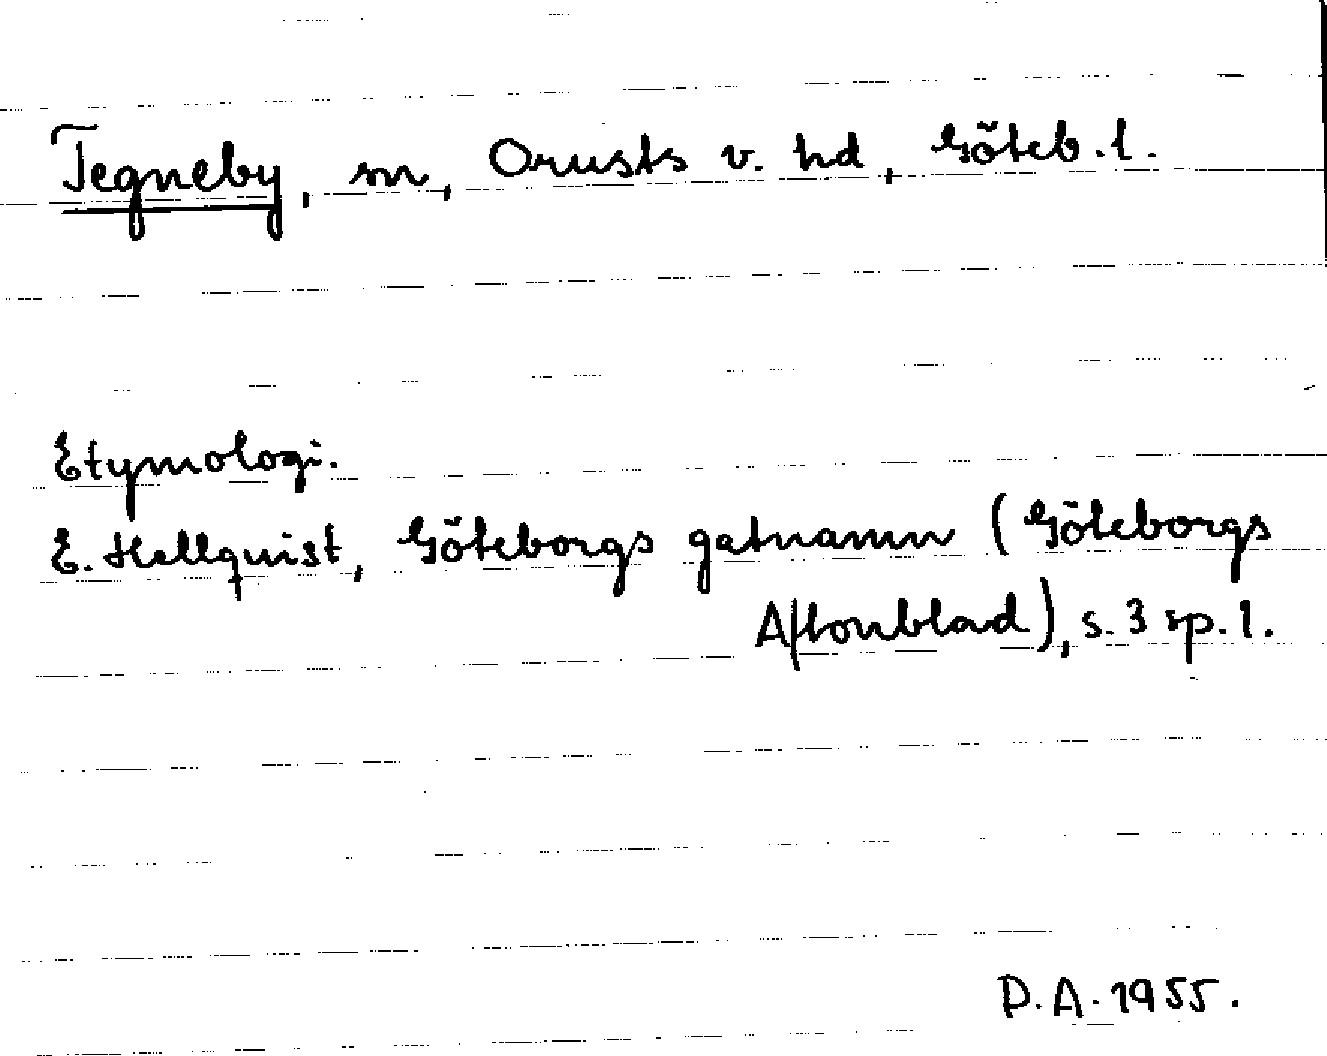 Tegneby, sn, Orusts v. hd, Göteb. l.
Etymologi.
E. Hellquist, Göteborgs gatnamn (Göteborgs
Aftonblad), s. 3 sp. 1.
D. A. 1955.